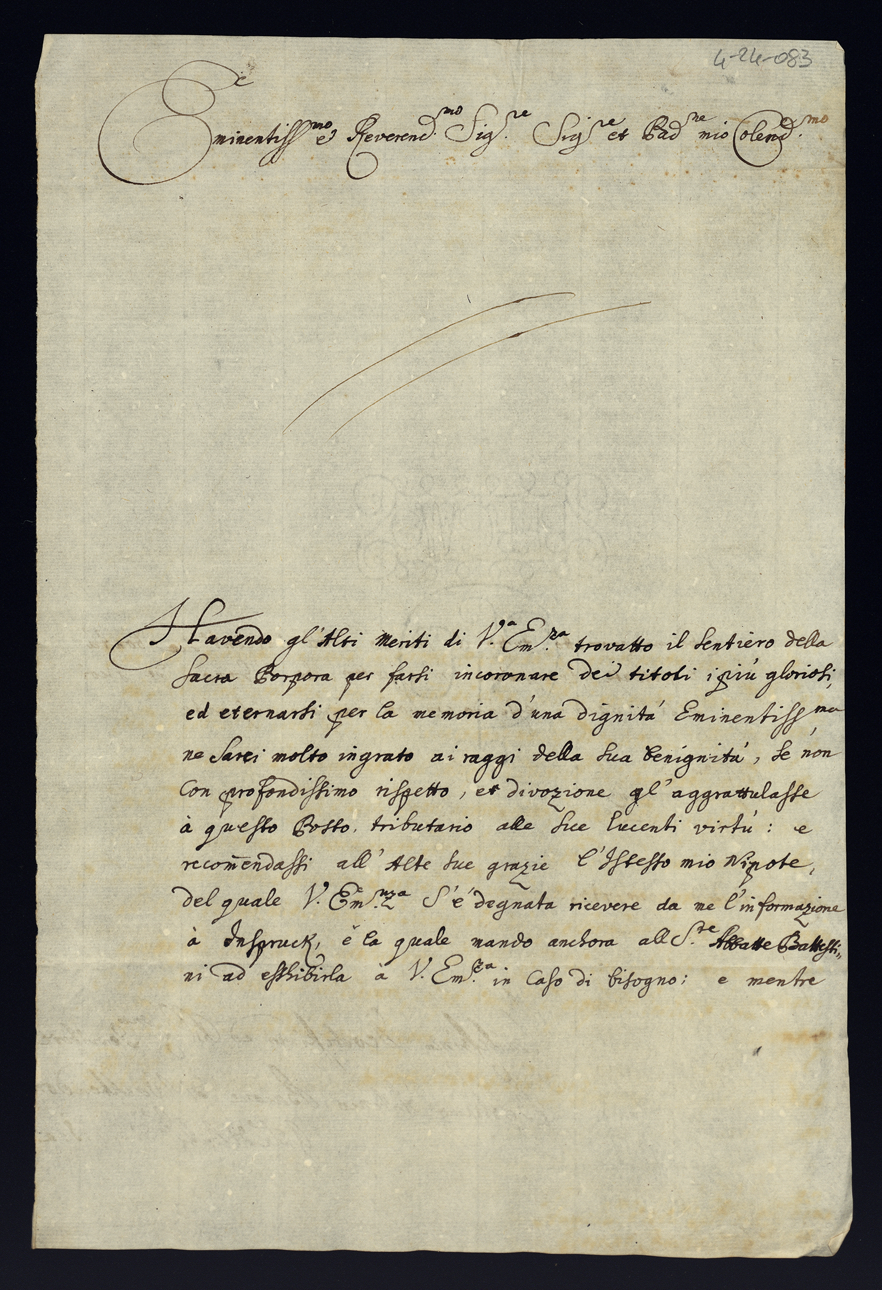 4-24-083
Eminentiss.mo e Reverend.mo Sig.re Sig.re et Pad.ne mio Colend.mo
Havendo gl'Alti meriti di V.ra Em.za trovatto il sentiero della
Sacra Porpora per farsi incoronare dei titoli i più gloriosi,
ed eternarsi per la memoria d'una dignità Eminentiss.ma
ne sarei molto ingrato ai raggi della sua benignità, se non
con profondissimo rispetto, et divozione gl'aggrattulasse
à questo Posto, tributario alle sue lucenti virtù: e
recom̄endassi all'Alte sue grazie l'Istesso mio Nipote,
del quale V. Em.nza s'è degnata ricevere da me l'informazione
à Inspruck, è la quale mando anchora all S.re Abbatte Battesti„
ni ad esshibirla à V. Em.za in caso di bisogno: e mentre